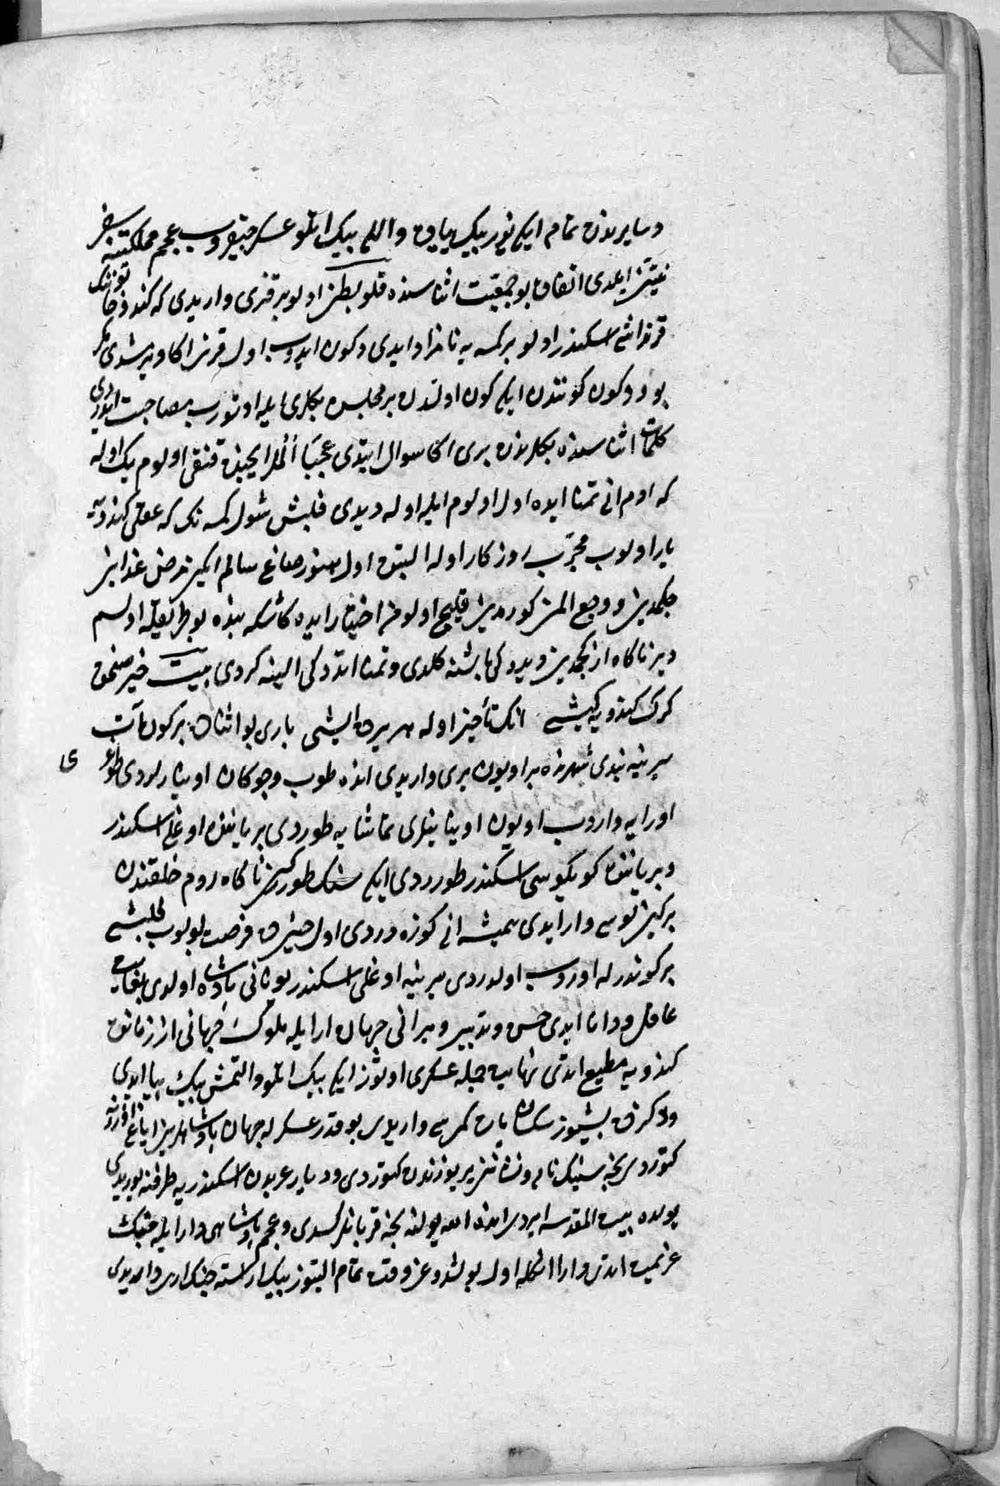 و سایرندن تمام ایکی یوز بیك یایق و اللی بیك اتلو عسکر چیقروب عجم مملکتنه سفر
نیتن ایلدی اتفاقا بو جمعیت اثناسنده قلوبطره اولو بر قزی وار یدی که کندو
قرنداشی اسکندر اولو بر کمسه یه نامزد ایدی دکون ایدوب اول قزی اکا ویرشدی
بو دوکون کونندن ایکی کون اولدن بر مجلس بکلری ایله اوتورب مصاحبت ایدردی
کلمات اثناسنده بکلرندن بری اکا سوال ایتدی عجبا اولملر ایچنده قنقی اولوم یك اوله
که ادم انی تمنا ایده اول اولوم ایله اوله دیدی فلبش شول کمسه نك که عقلی کندویه
یار اولوب مجرب روزکار اوله البته اول هنوز صاغ سالم ایکن مرض عذابن
چکمدین و وجع المن کورمدین قلیچ اولومن اختیار ایده کاشکه بنده بو طریقله اولسم
دیر ناکاه از کچمدین دیدوکی باشنه کلدی و تمنا اتدوکی الینه کردی بیت خیر صنمق
کرك کندویه کیشی انك تأخیر اوله هر بر ایشی باری بو اثناده بر کون آت
سرنیه نیدی شهرنده بر اویون یری وار یدی انده طوب و چوکان اوینارلردی
اورایه واروب اویون اوینایانلری تماشایه طوردی بر یاننده اوغلی اسکندر
و بر یاننده کویکوسی اسکندر طوردی ایکی طورکن ناکاه روم خلقندن
بر کمسه وار ایدی همیشه انی کوزه دردی اول حینده فرصت بولوب فلبشی
بر کوندرله اوروب اولدردی یرینه اوغلی اسکندر یونانی پادشاه اولدی بغایت
عاقل و دانا ایدی حسن و تدبیر و میرانی جهان ارایله ملوك جهانی از زمانده
کندویه مطیع اتدی نهایت جمله عسکری اوتوز ایکی بیك اتلو و التمش بیك یایا ایدی
و دکزده بشیوز سکسان پاره کمسی وار یدی بو قدر عسکرله جهان پادشاهلرین ایاغی اوزرینه
کتوردی نیجه سنك نام و نشانن یر یوزندن کتوردی و دیار عربدن اسکندریه طرفنه یوریدی
یولده بیت المقدسه ایردی انده الله یولنه نیجه قربانلر کسدی و عجم پادشاهی دارا ایله جنکه
عزیمت اتدی دارا انکله اول بولشدوغی وقت تمام التیوز بیك اراسته جنك اری وار یدی